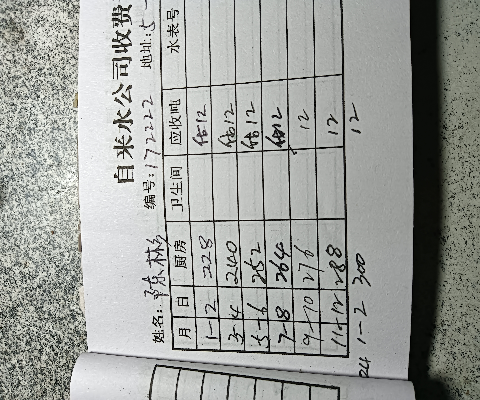 自来水公司收费
姓名:陈彬 编号:172222 地址:5-
月 日 厨房 卫生间 应收吨 水表号
1-2 228 估12
3-4 240 估12
5-6 252 估12
7-8 264 估12
9-10 276 12
11-12 288 12
24 1-2 300 12